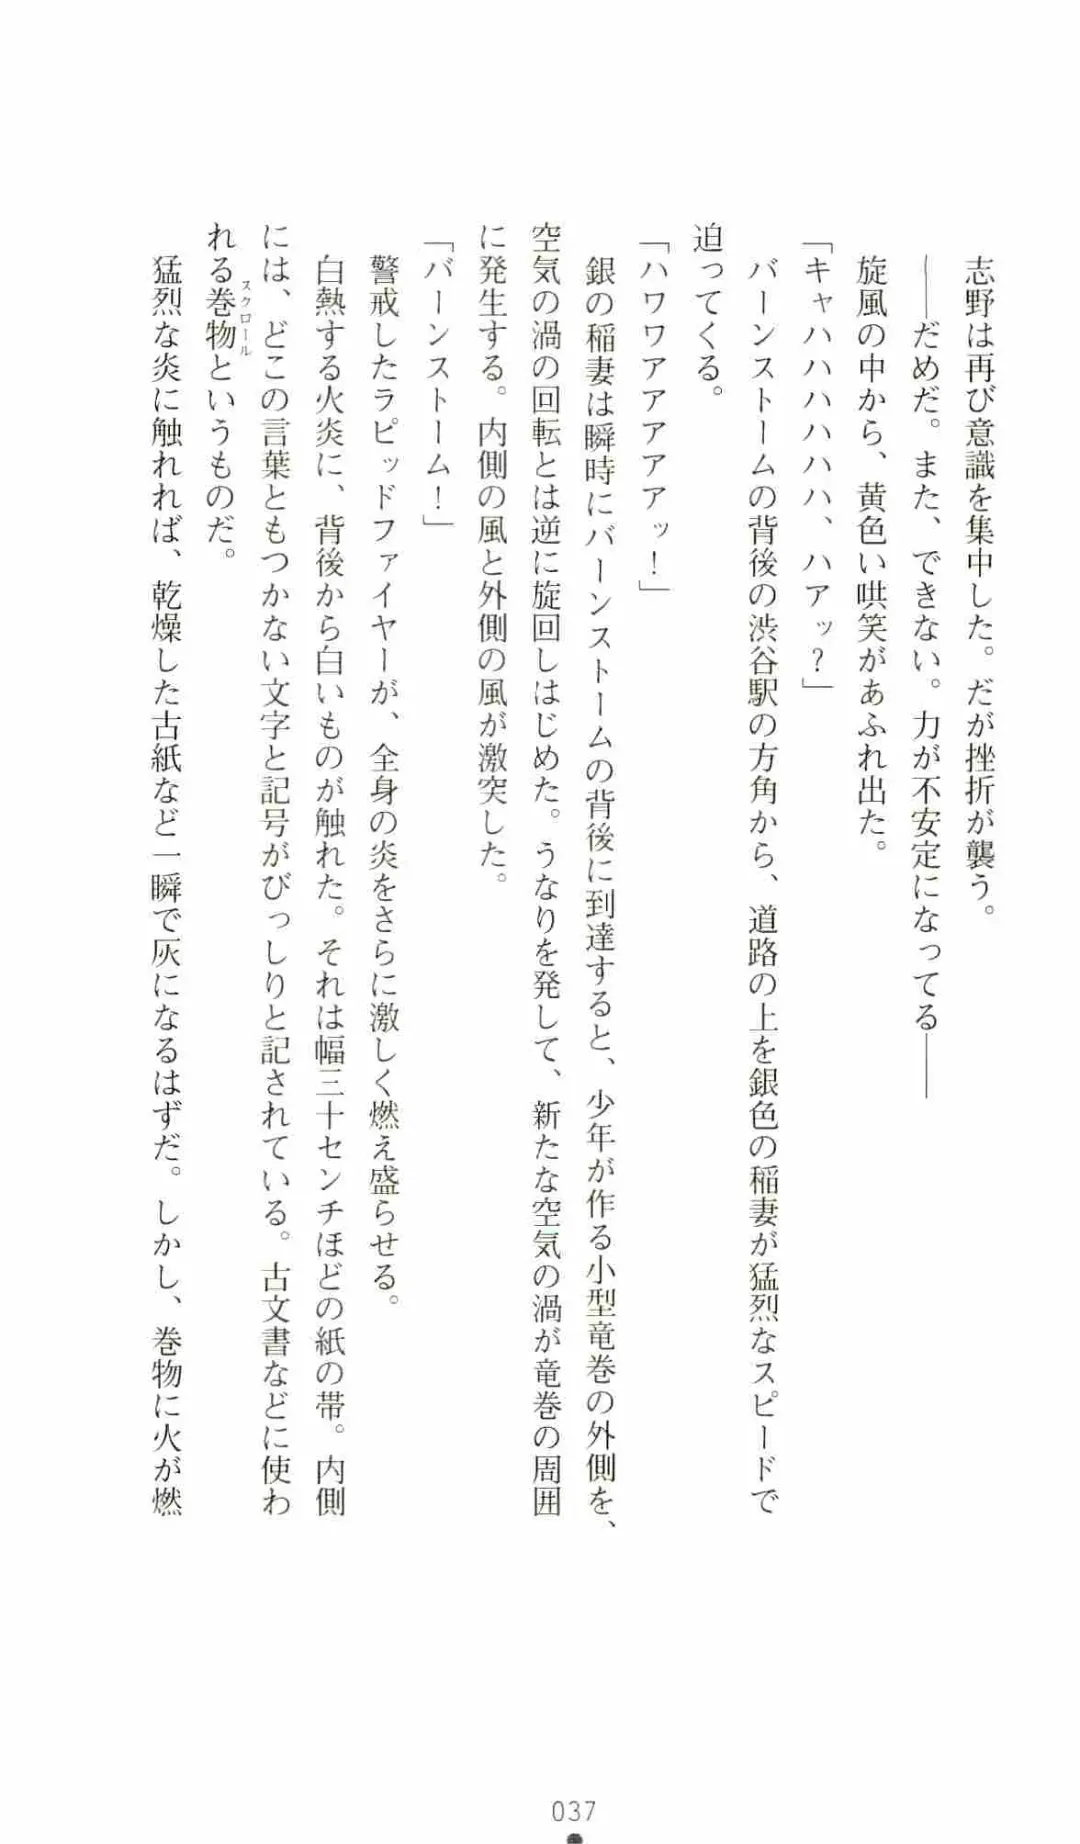 志野は再び意識を集中した。だが挫折が襲う。
――だめだ。また、できない。力が不安定になってる――
旋風の中から、黄色い哄笑があふれ出た。
「キャハハハハハハ、ハアッ？」
バーンストームの背後の渋谷駅の方角から、道路の上を銀色の稲妻が猛烈なスピードで
迫ってくる。
「ハワワアアアアアッ！」
銀の稲妻は瞬時にバーンストームの背後に到達すると、少年が作る小型竜巻の外側を、
空気の渦の回転とは逆に旋回しはじめた。うなりを発して、新たな空気の渦が竜巻の周囲
に発生する。内側の風と外側の風が激突した。
「バーンストーム！」
警戒したラピッドファイヤーが、全身の炎をさらに激しく燃え盛らせる。
白熱する火炎に、背後から白いものが触れた。それは幅三十センチほどの紙の帯。内側
には、どこの言葉ともつかない文字と記号がびっしりと記されている。古文書などに使わ
れる巻物スクロールというものだ。
猛烈な炎に触れれば、乾燥した古紙など一瞬で灰になるはずだ。しかし、巻物に火が燃
037